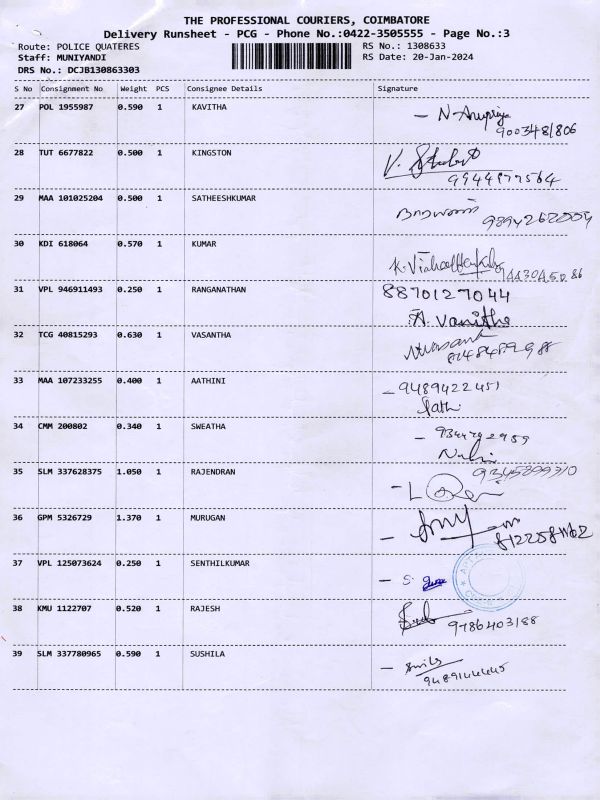 THE PROFESSIONAL COURIERS, COIMBATORE
Delivery Runsheet - PCG - Phone No.:0422-3505555 - Page No.:3
Route: POLICE QUATERES RS No.: 1308633
Staff: MUNIYANDI RS Date: 20-Jan-2024
DRS No.: DCJB130863303
S No Consignment No Weight PCS Consignee Details Signature
27 POL 1955987 0.590 1 KAVITHA
28 TUT 6677822 0.500 1 KINGSTON
29 MAA 101025204 0.500 1 SATHEESHKUMAR
30 KDI 618064 0.570 1 KUMAR
31 VPL 946911493 0.250 1 RANGANATHAN 8870127044
A. Vanitha
32 TCG 40815293 0.630 1 VASANTHA
33 MAA 107233255 0.400 1 AATHINI - 9489422451
34 CMM 200802 0.340 1 SWEATHA
35 SLM 337628375 1.050 1 RAJENDRAN
36 GPM 5326729 1.370 1 MURUGAN
37 VPL 125073624 0.250 1 SENTHILKUMAR
38 KMU 1122707 0.520 1 RAJESH
9786403188
39 SLM 337780965 0.590 1 SUSHILA